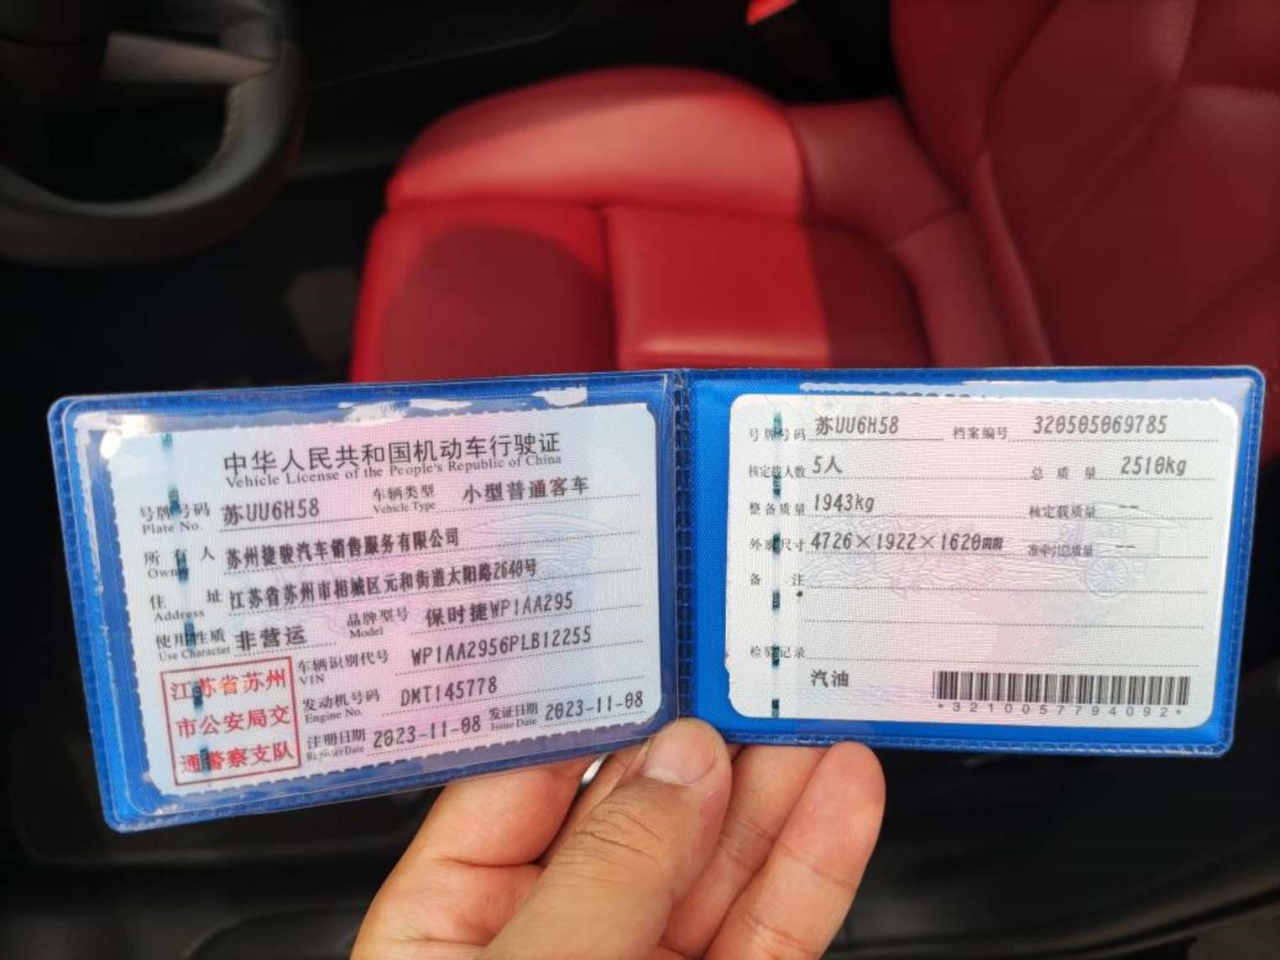 中华人民共和国机动车行驶证
Vehicle License of the People's Republic of China
号牌号码 苏UU6H58 车辆类型 小型普通客车
Plate No. Vehicle Type
所有人 苏州捷骏汽车销售服务有限公司
Owner
住址 江苏省苏州市相城区元和街道太阳路2640号
Address
使用性质 非营运 品牌型号 保时捷WP1AA295
Use Character Model
车辆识别代号 WP1AA2956PLB12255
VIN
发动机号码 DMT145778
Engine No.
注册日期 2023-11-08 发证日期 2023-11-08
Register Date Issue Date
江苏省苏州
市公安局交
通警察支队
号牌号码 苏UU6H58 档案编号 320505069785
核定载人数 5人 总质量 2510kg
整备质量 1943kg 核定载质量 --
外廓尺寸 4726×1922×1620mm 准牵引总质量 --
备注
检验记录
汽油
*3210057794092*